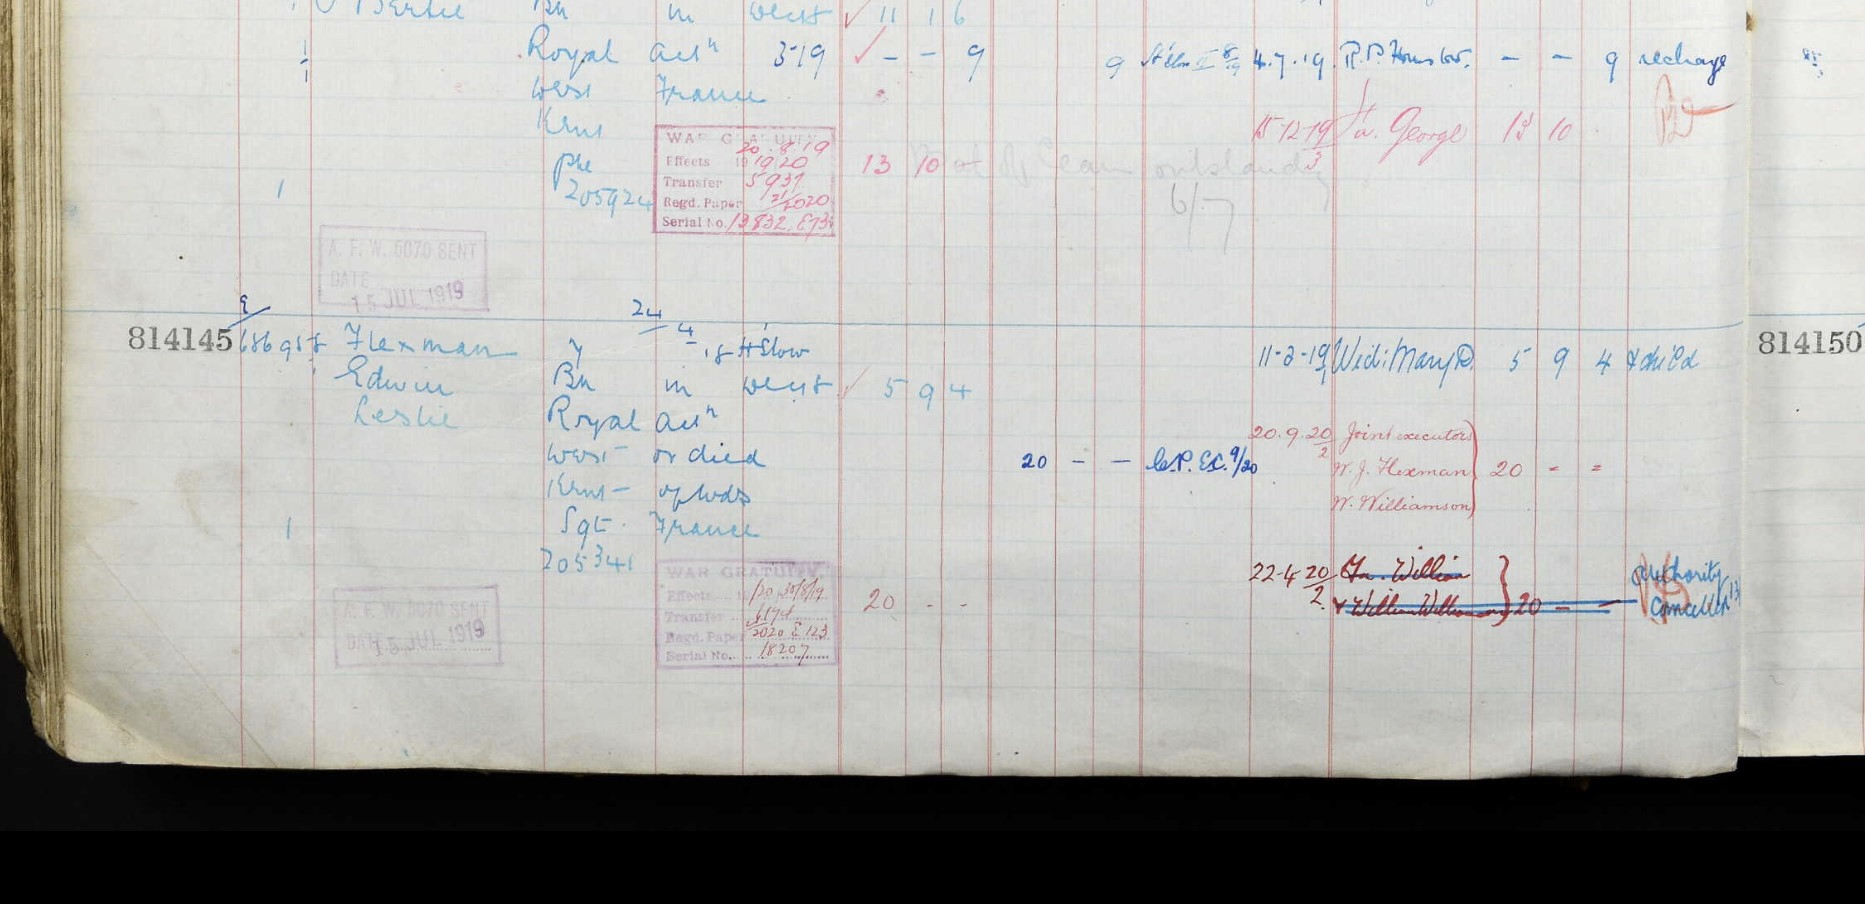 Bertie Bn in West 11 1 6
Royal Actn 3-19 - - 9 9 4.7.19 R.P. Hounslow. - - 9 recharge
West France
Kent
15-12-19 Fa. George 13 10
3
WAR GRATUITY
20.8.19
Effects 1920
Transfer 5937
Regd. Paper 2020
Serial No. 13832 E73
13 10
Pte
1 205924
outstanding
6/7
A. F. W. 5070 SENT
DATE
15 JUL 1919
E/
814145 686958 Flexman 7 24/4.18 H'slow 11-2-19 Wid: Mary D. 5 9 4 & child 814150
Edwin Bn in West 5 9 4
Leslie Royal Actn
West or died 20 - - 9/20 20.9.20 Joint executors
2
Kent of wds W. J. Flexman 20 - =
W. Williamson
1 Sgt. France
205341
WAR GRATUITY
Effects
Transfer
Regd. Paper 2020 E 123
Serial No. 18207
20 - -
A. F. W. 5070 SENT
DATE 15 JUL 1919
22-4-20 Fa. William
2
& William Williamson 20 - -
Authority
Cancelled